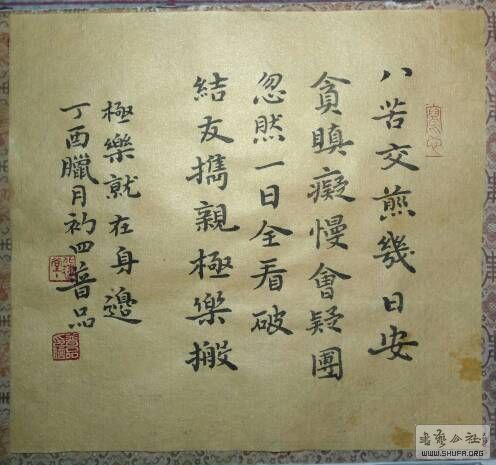 八苦交煎幾日安
貪瞋癡慢會疑團
忽然一日全看破
結友攜親極樂搬
極樂就在身邊
丁酉臘月初四音品
书艺公社
WWW.SHUFA.ORG